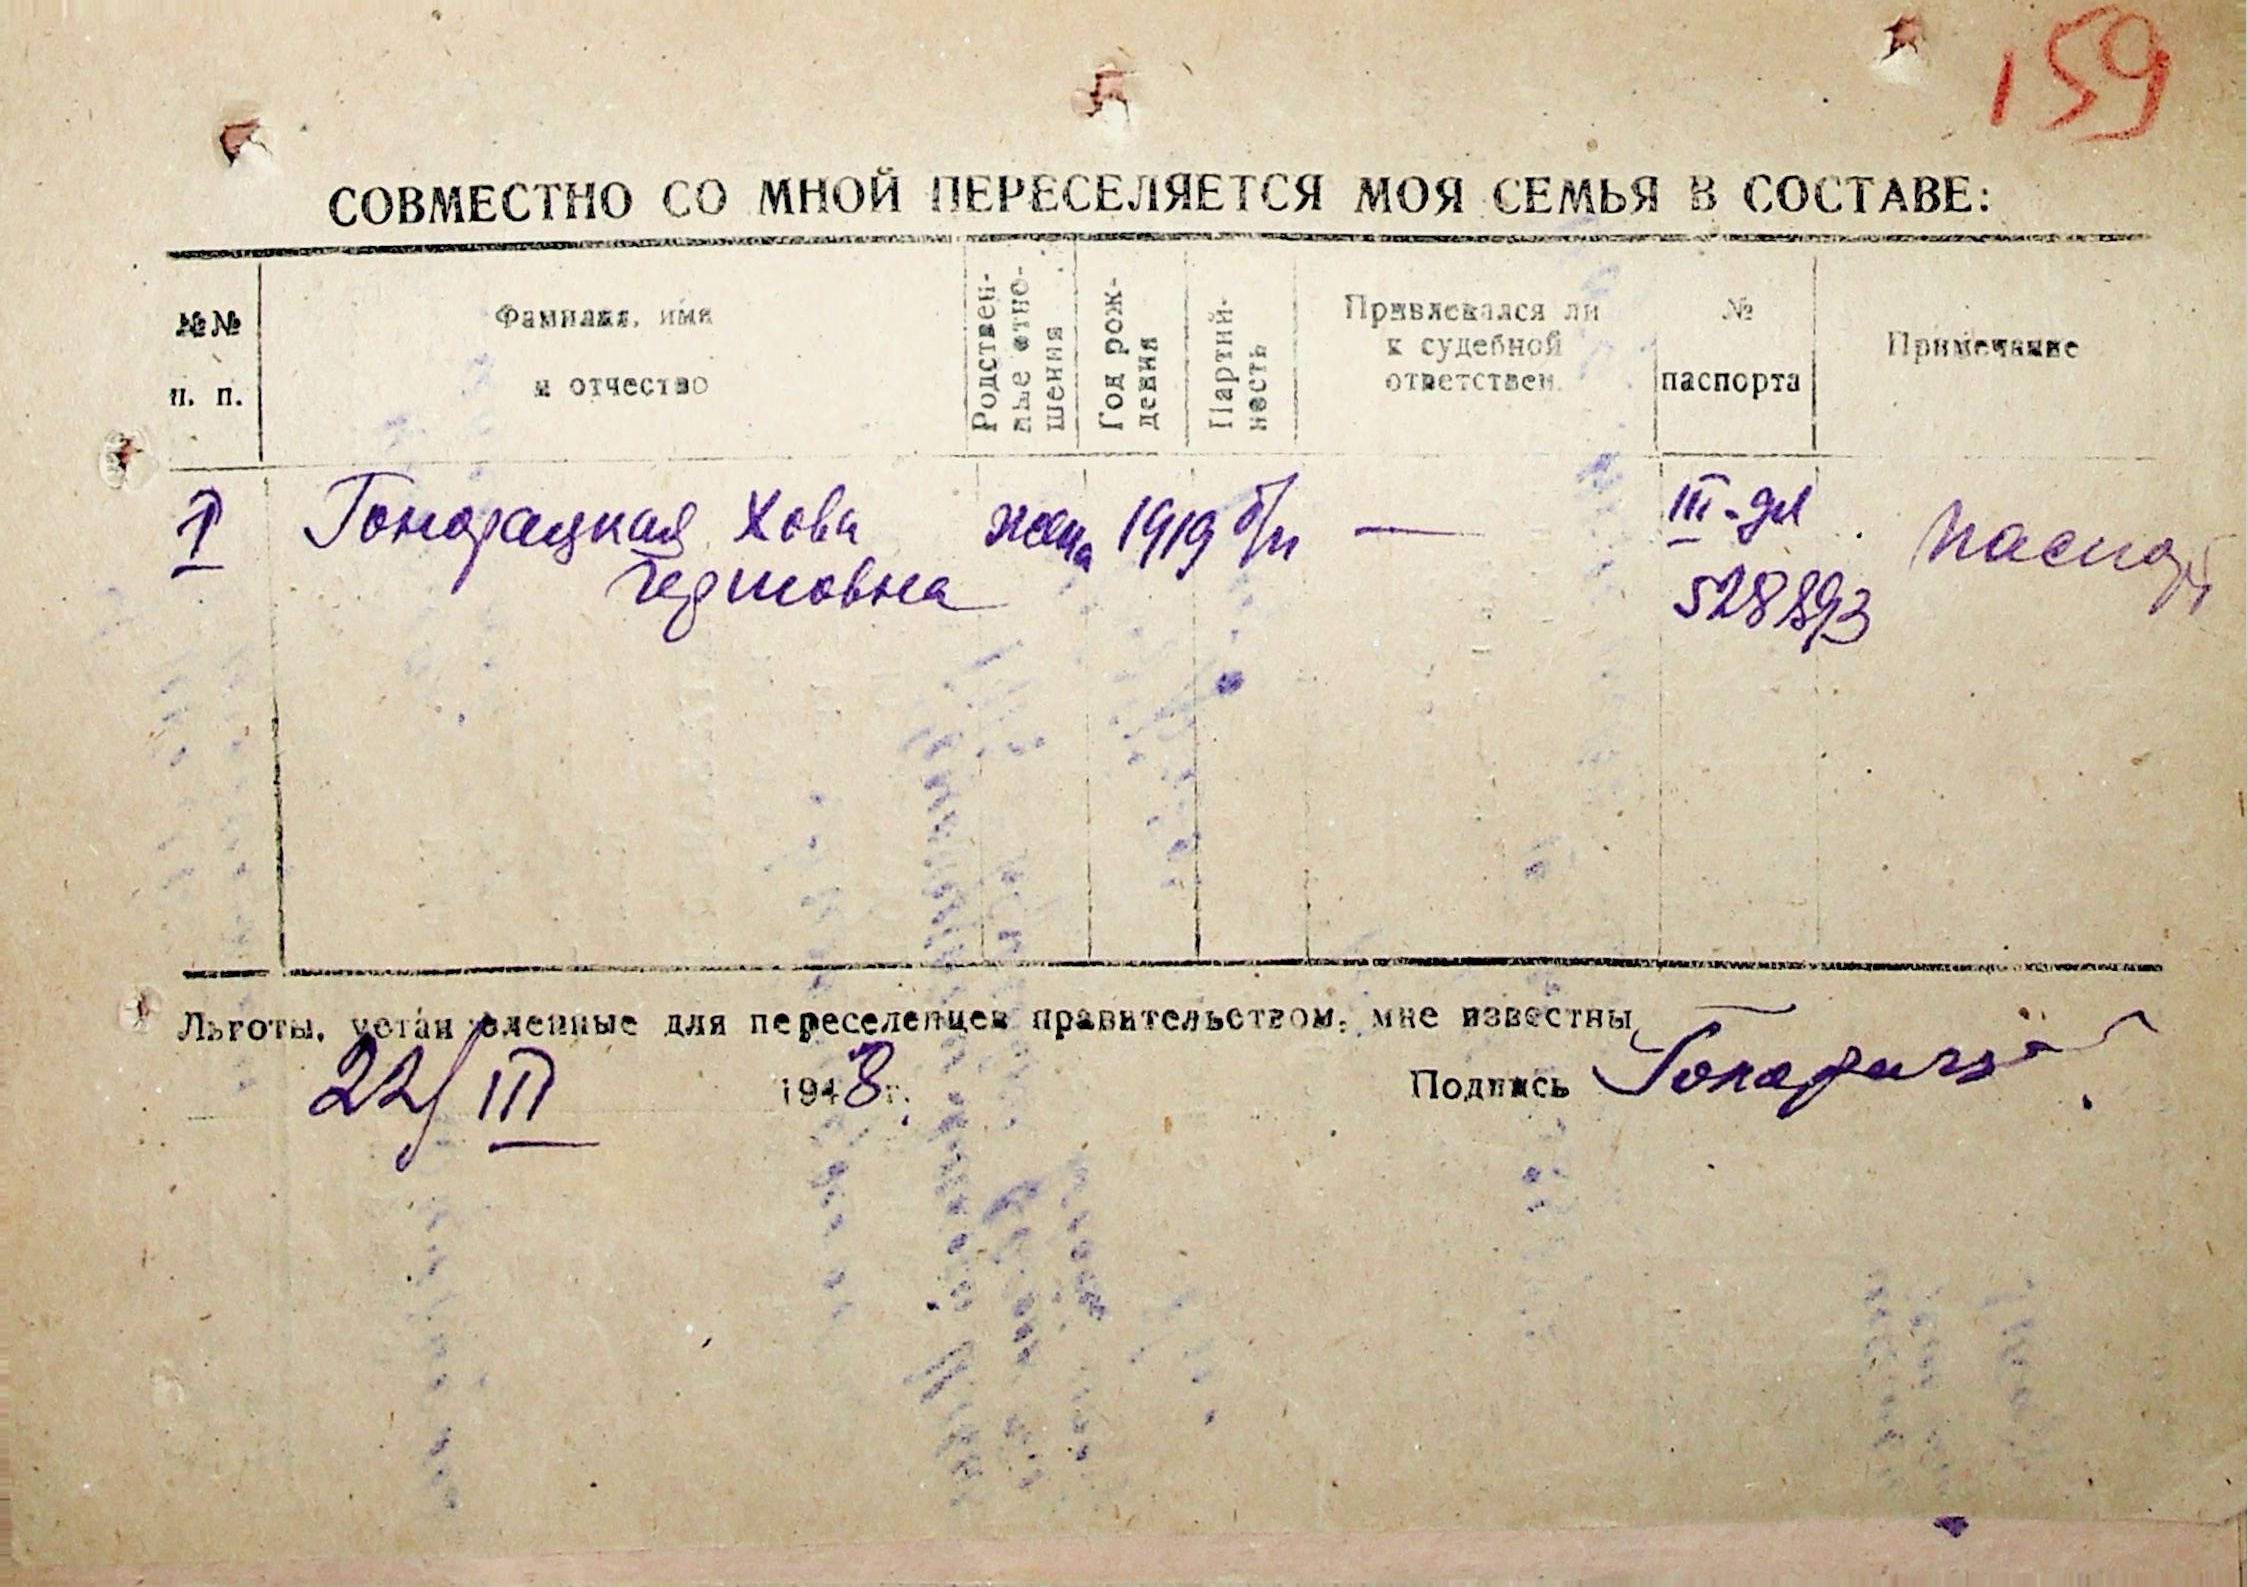 159
СОВМЕСТНО СО МНОЙ ПЕРЕСЕЛЯЕТСЯ МОЯ СЕМЬЯ В СОСТАВЕ:
№№
п. п.
Фамилия, имя
и отчество
Родствен-
ные отно-
шения
Год рож-
дения
Партий-
ность
Привлекался ли
к судебной
ответствен.
№
паспорта
Примечание
1 Гонорацкая Хова жена 1919 б/п — III-дл паспорт
Гершовна 528893
Льготы, установленные для переселенцев правительством, мне известны
22/III 1948 г. Подпись